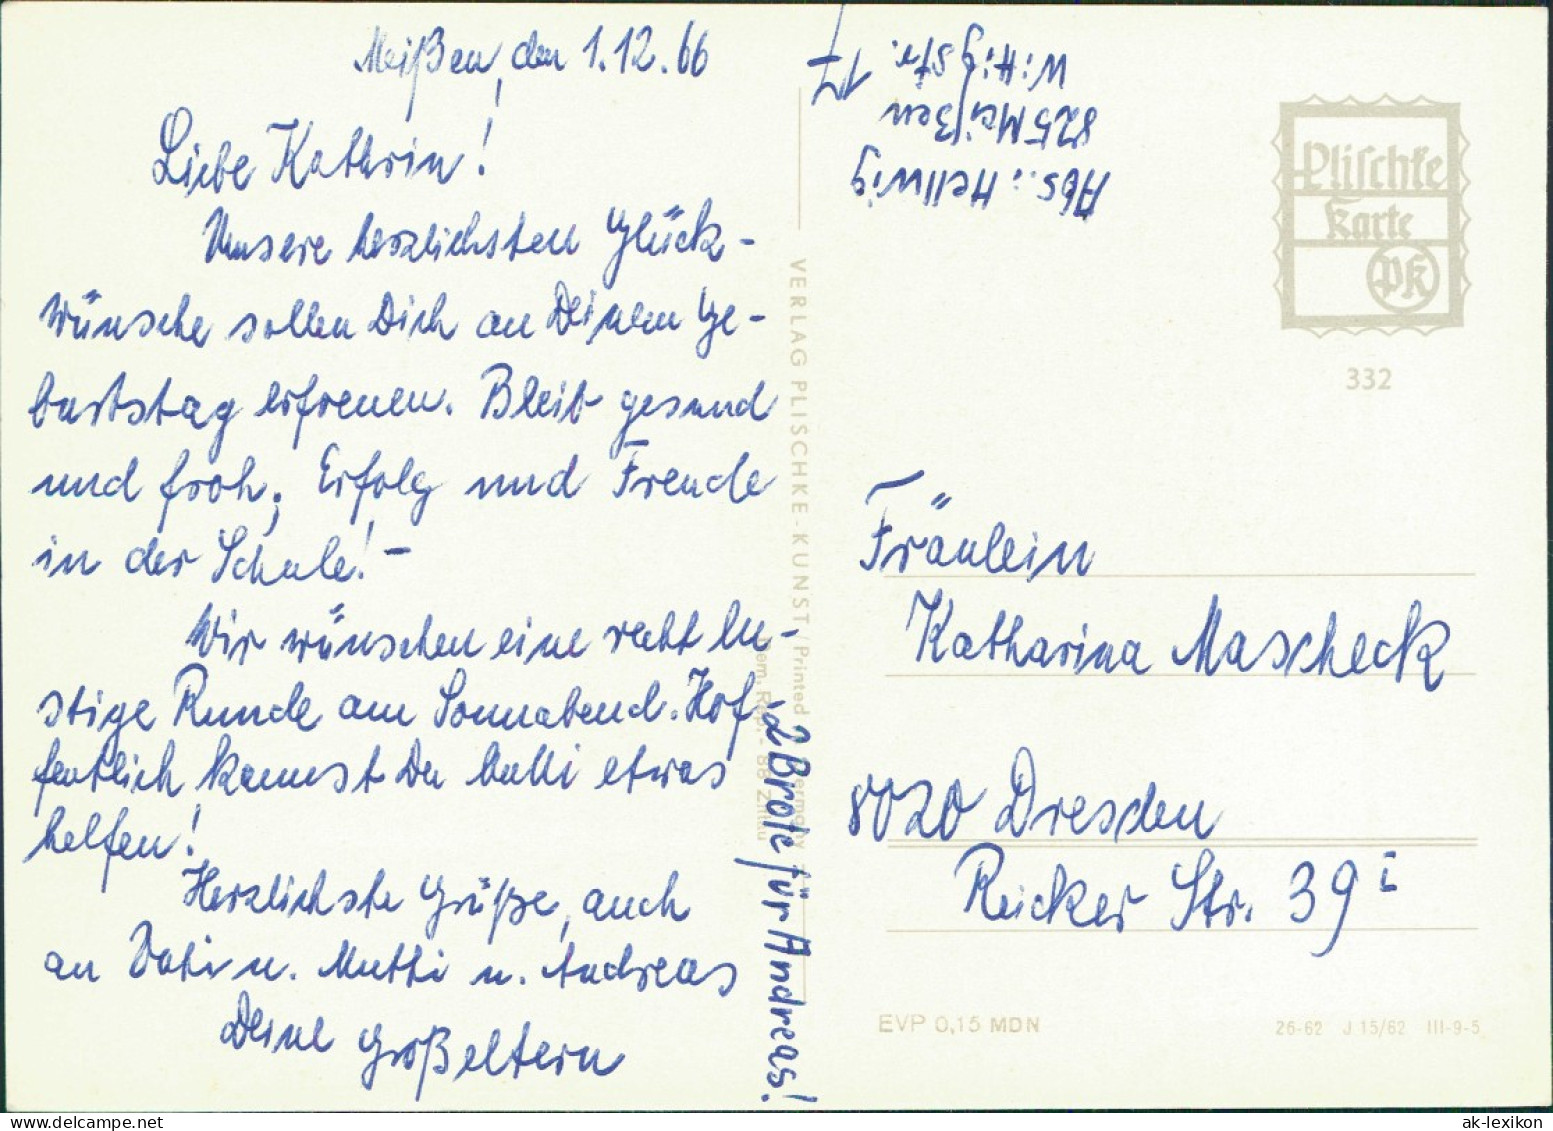 Meißen, den 1.12.66
Liebe Kathrin!
Unsere herzlichsten Glück-
wünsche sollen Dich an Deinem Ge-
burtstag erfreuen. Bleib gesund
und froh; Erfolg und Freude
in der Schule! –
Wir wünschen eine recht lu-
stige Runde am Sonnabend. Hof-
fentlich kannst Du Mutti etwas
helfen!
Herzlichste Grüße, auch
an Vati u. Mutti u. Andreas
Deine Großeltern
2 Brote für Andreas!
VERLAG PLISCHKE-KUNST / Printed Germany
Dem. Rep. - 88 Zittau
Abs.: Hellwig
825 Meißen
Wittigstr.
17
Plischke
Karte
PK
332
Fräulein
Katharina Mascheck
8020 Dresden
Reicker Str. 39 I
EVP 0,15 MDN
26-62 J 15/62 III-9-5
ak-lexikon